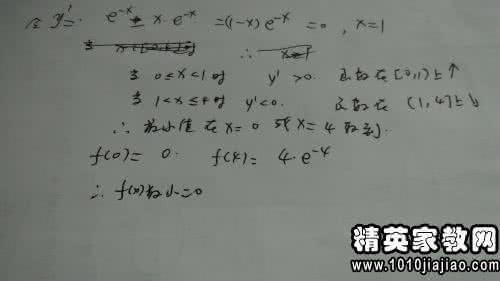 令 y'= e^-x - x·e^-x =(1-x)e^-x =0 , x=1
当 ∴
当 0≤x<1时 y'>0. 函数在[0,1)上↑
当 1<x≤4时 y'<0. 函数在(1,4]上↓
∴ 最小值在x=0或x=4取到.
f(0)= 0. f(4)= 4·e^-4
∴ f(x)最小=0
精英家教网
www.1010jiajiao.com